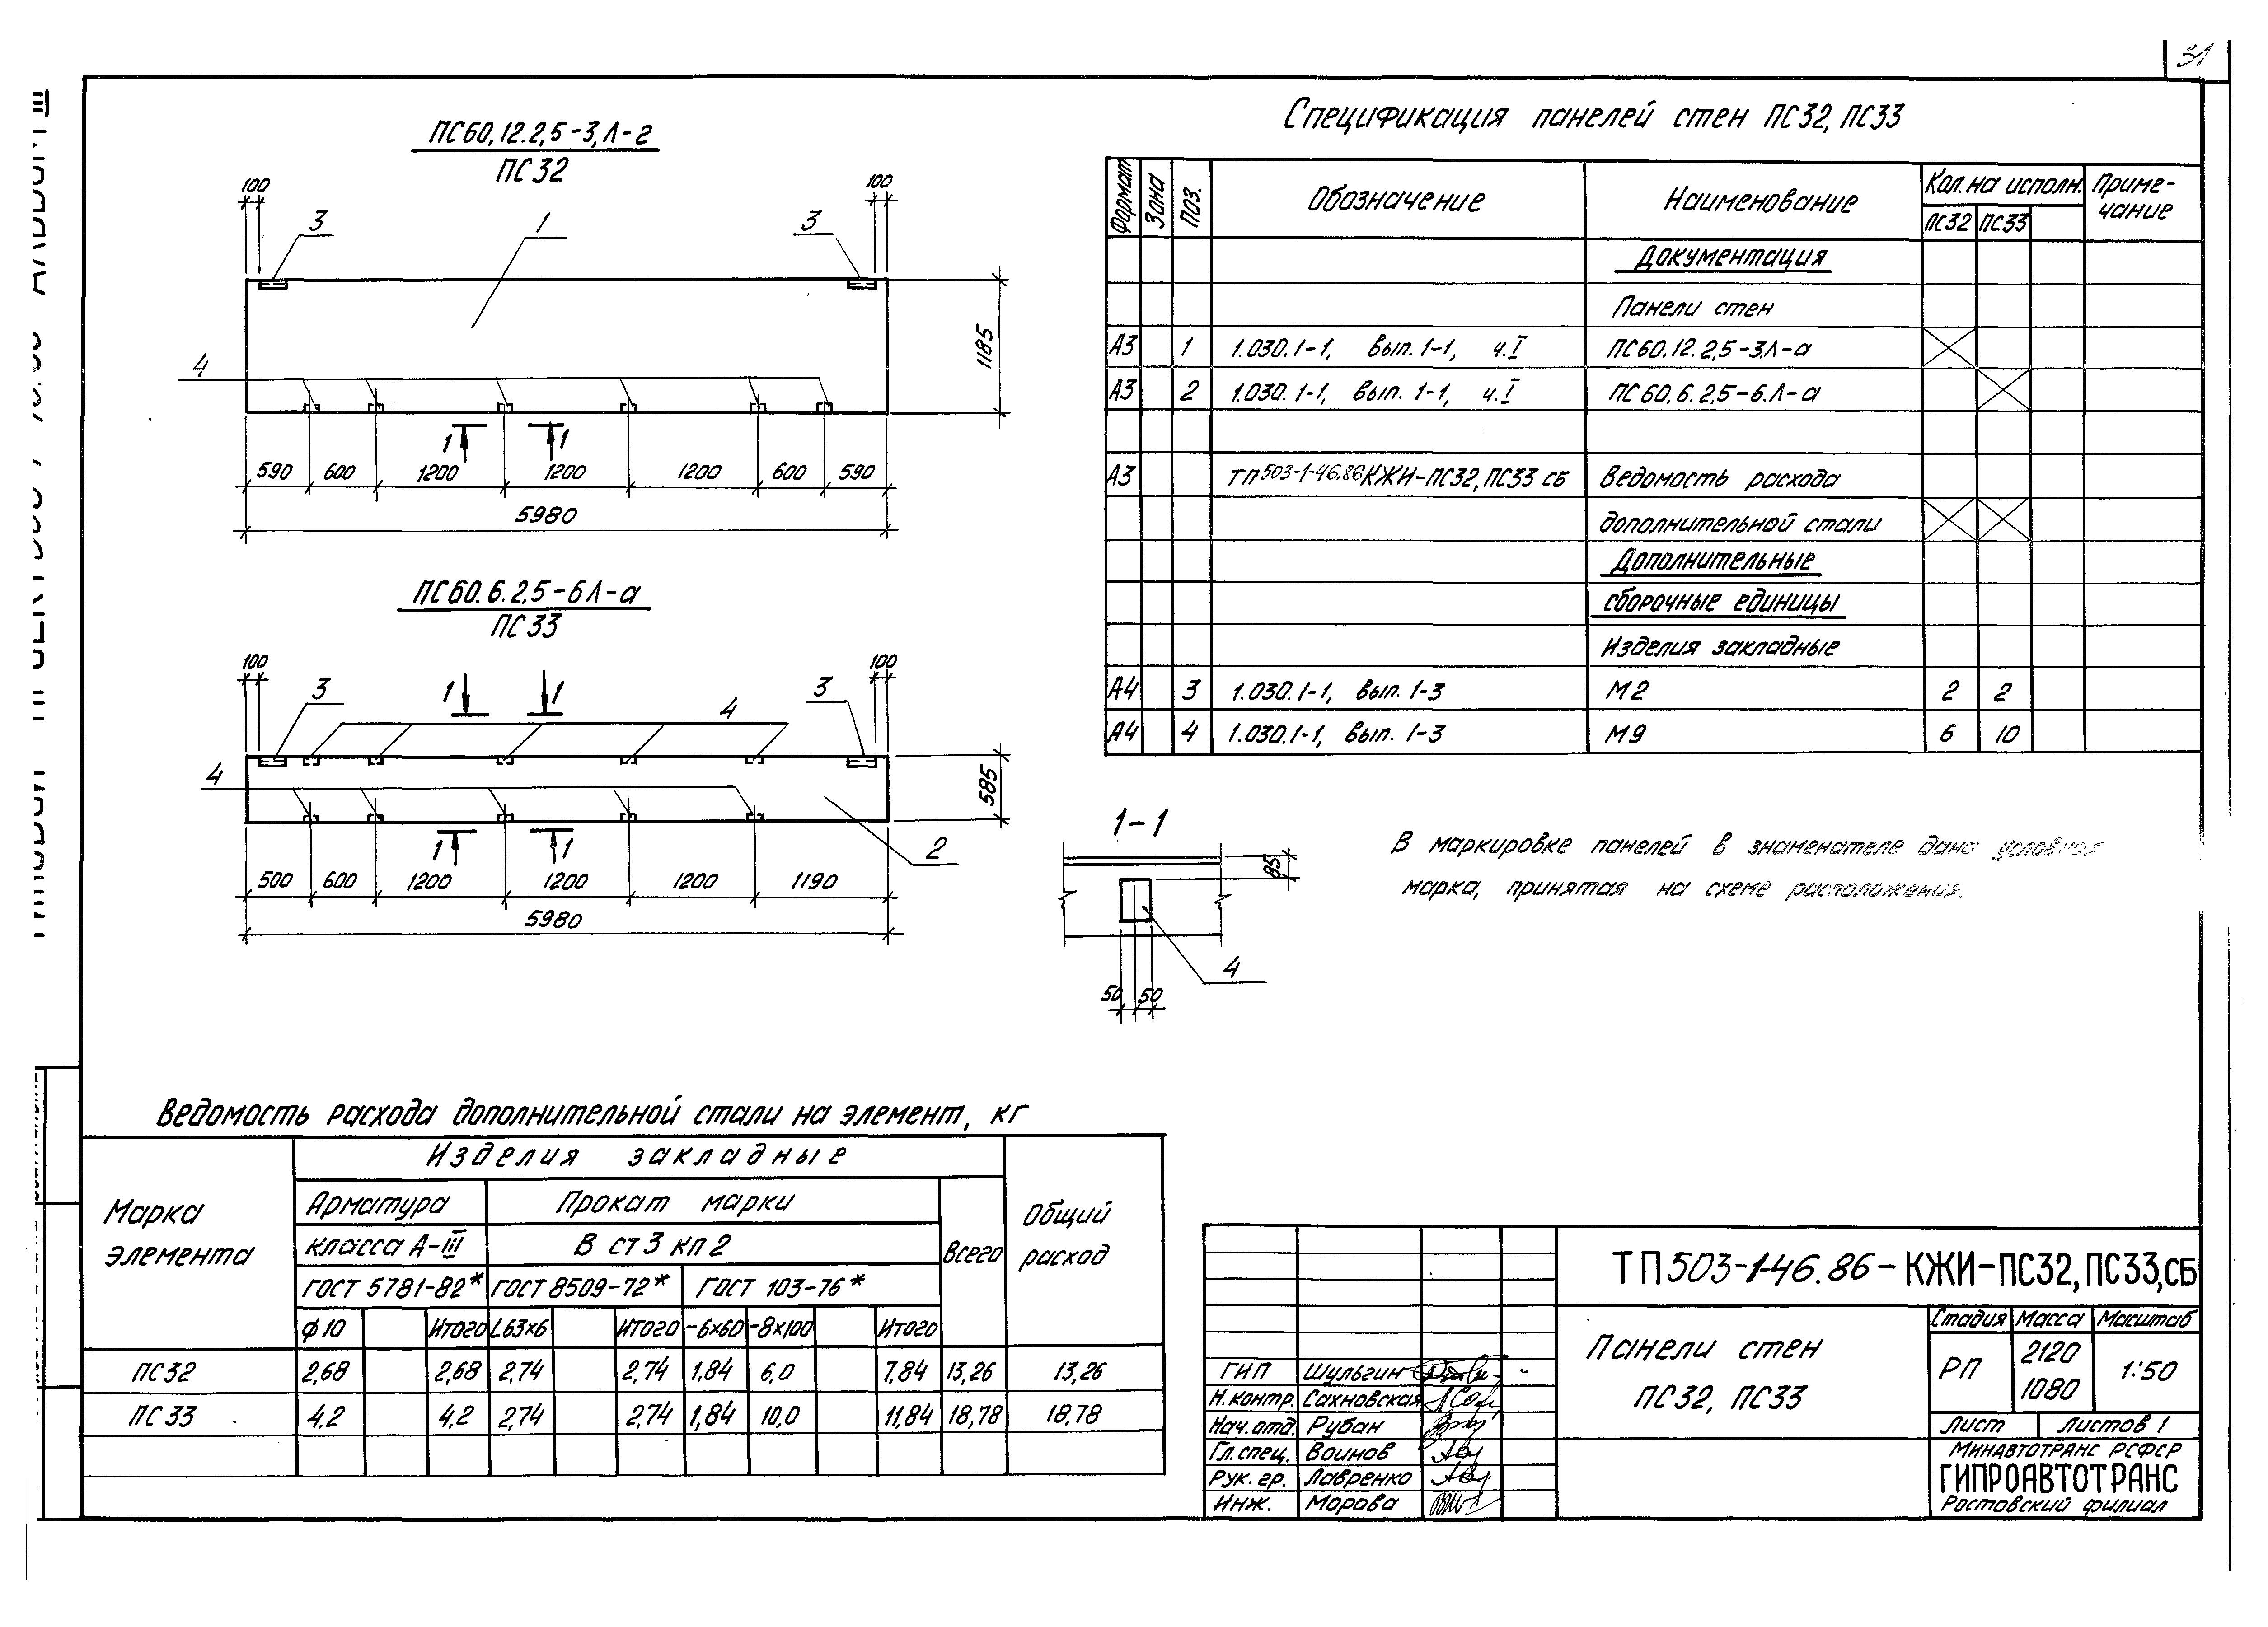 31
ПС60,12.2,5-3,Л-г
ПС32
100
100
3
1
3
4
1185
1
1
590 600 1200 1200 1200 600 590
5980
ПС60.6.2,5-6Л-а
ПС33
100
100
1
1
3
4
3
4
585
1
1
2
500 600 1200 1200 1200 1190
5980
Спецификация панелей стен ПС32, ПС33
Формат Зона Поз. Обозначение Наименование Кол. на исполн. Приме-
чание
ПС32 ПС33
Документация
Панели стен
А3 1 1.030.1-1, вып.1-1, ч.I ПС60,12.2,5-3,Л-а
А3 2 1.030.1-1, вып. 1-1, ч.I ПС60.6.2,5-6.Л-а
А3 ТП503-1-46.86КЖИ-ПС32,ПС33 СБ Ведомость расхода
дополнительной стали
Дополнительные
сборочные единицы
Изделия закладные
А4 3 1.030.1-1, вып. 1-3 М2 2 2
А4 4 1.030.1-1, вып. 1-3 М9 6 10
1-1
85
4
50 50
В маркировке панелей в знаменателе дана условная
марка, принятая на схеме расположения.
Ведомость расхода дополнительной стали на элемент, кг
Марка
элемента
Изделия закладные
Общий
расход
Арматура
класса А-III
Прокат марки
В ст3 кп2
Всего
ГОСТ 5781-82* ГОСТ 8509-72* ГОСТ 103-76*
φ10 Итого L63×6 Итого -6×60 -8×100 Итого
ПС32 2,68 2,68 2,74 2,74 1,84 6,0 7,84 13,26 13,26
ПС33 4,2 4,2 2,74 2,74 1,84 10,0 11,84 18,78 18,78
ТП503-1-46.86-КЖИ-ПС32,ПС33,СБ
Панели стен
ПС32, ПС33
Стадия Масса Масштаб
РП 2120
1080 1:50
Лист Листов 1
ГИП Шульгин
Н.контр. Сахновская
Нач.отд. Рубан
Гл.спец. Воинов
Рук.гр. Лавренко
Инж. Морова
Минавтотранс РСФСР
ГИПРОАВТОТРАНС
Ростовский филиал